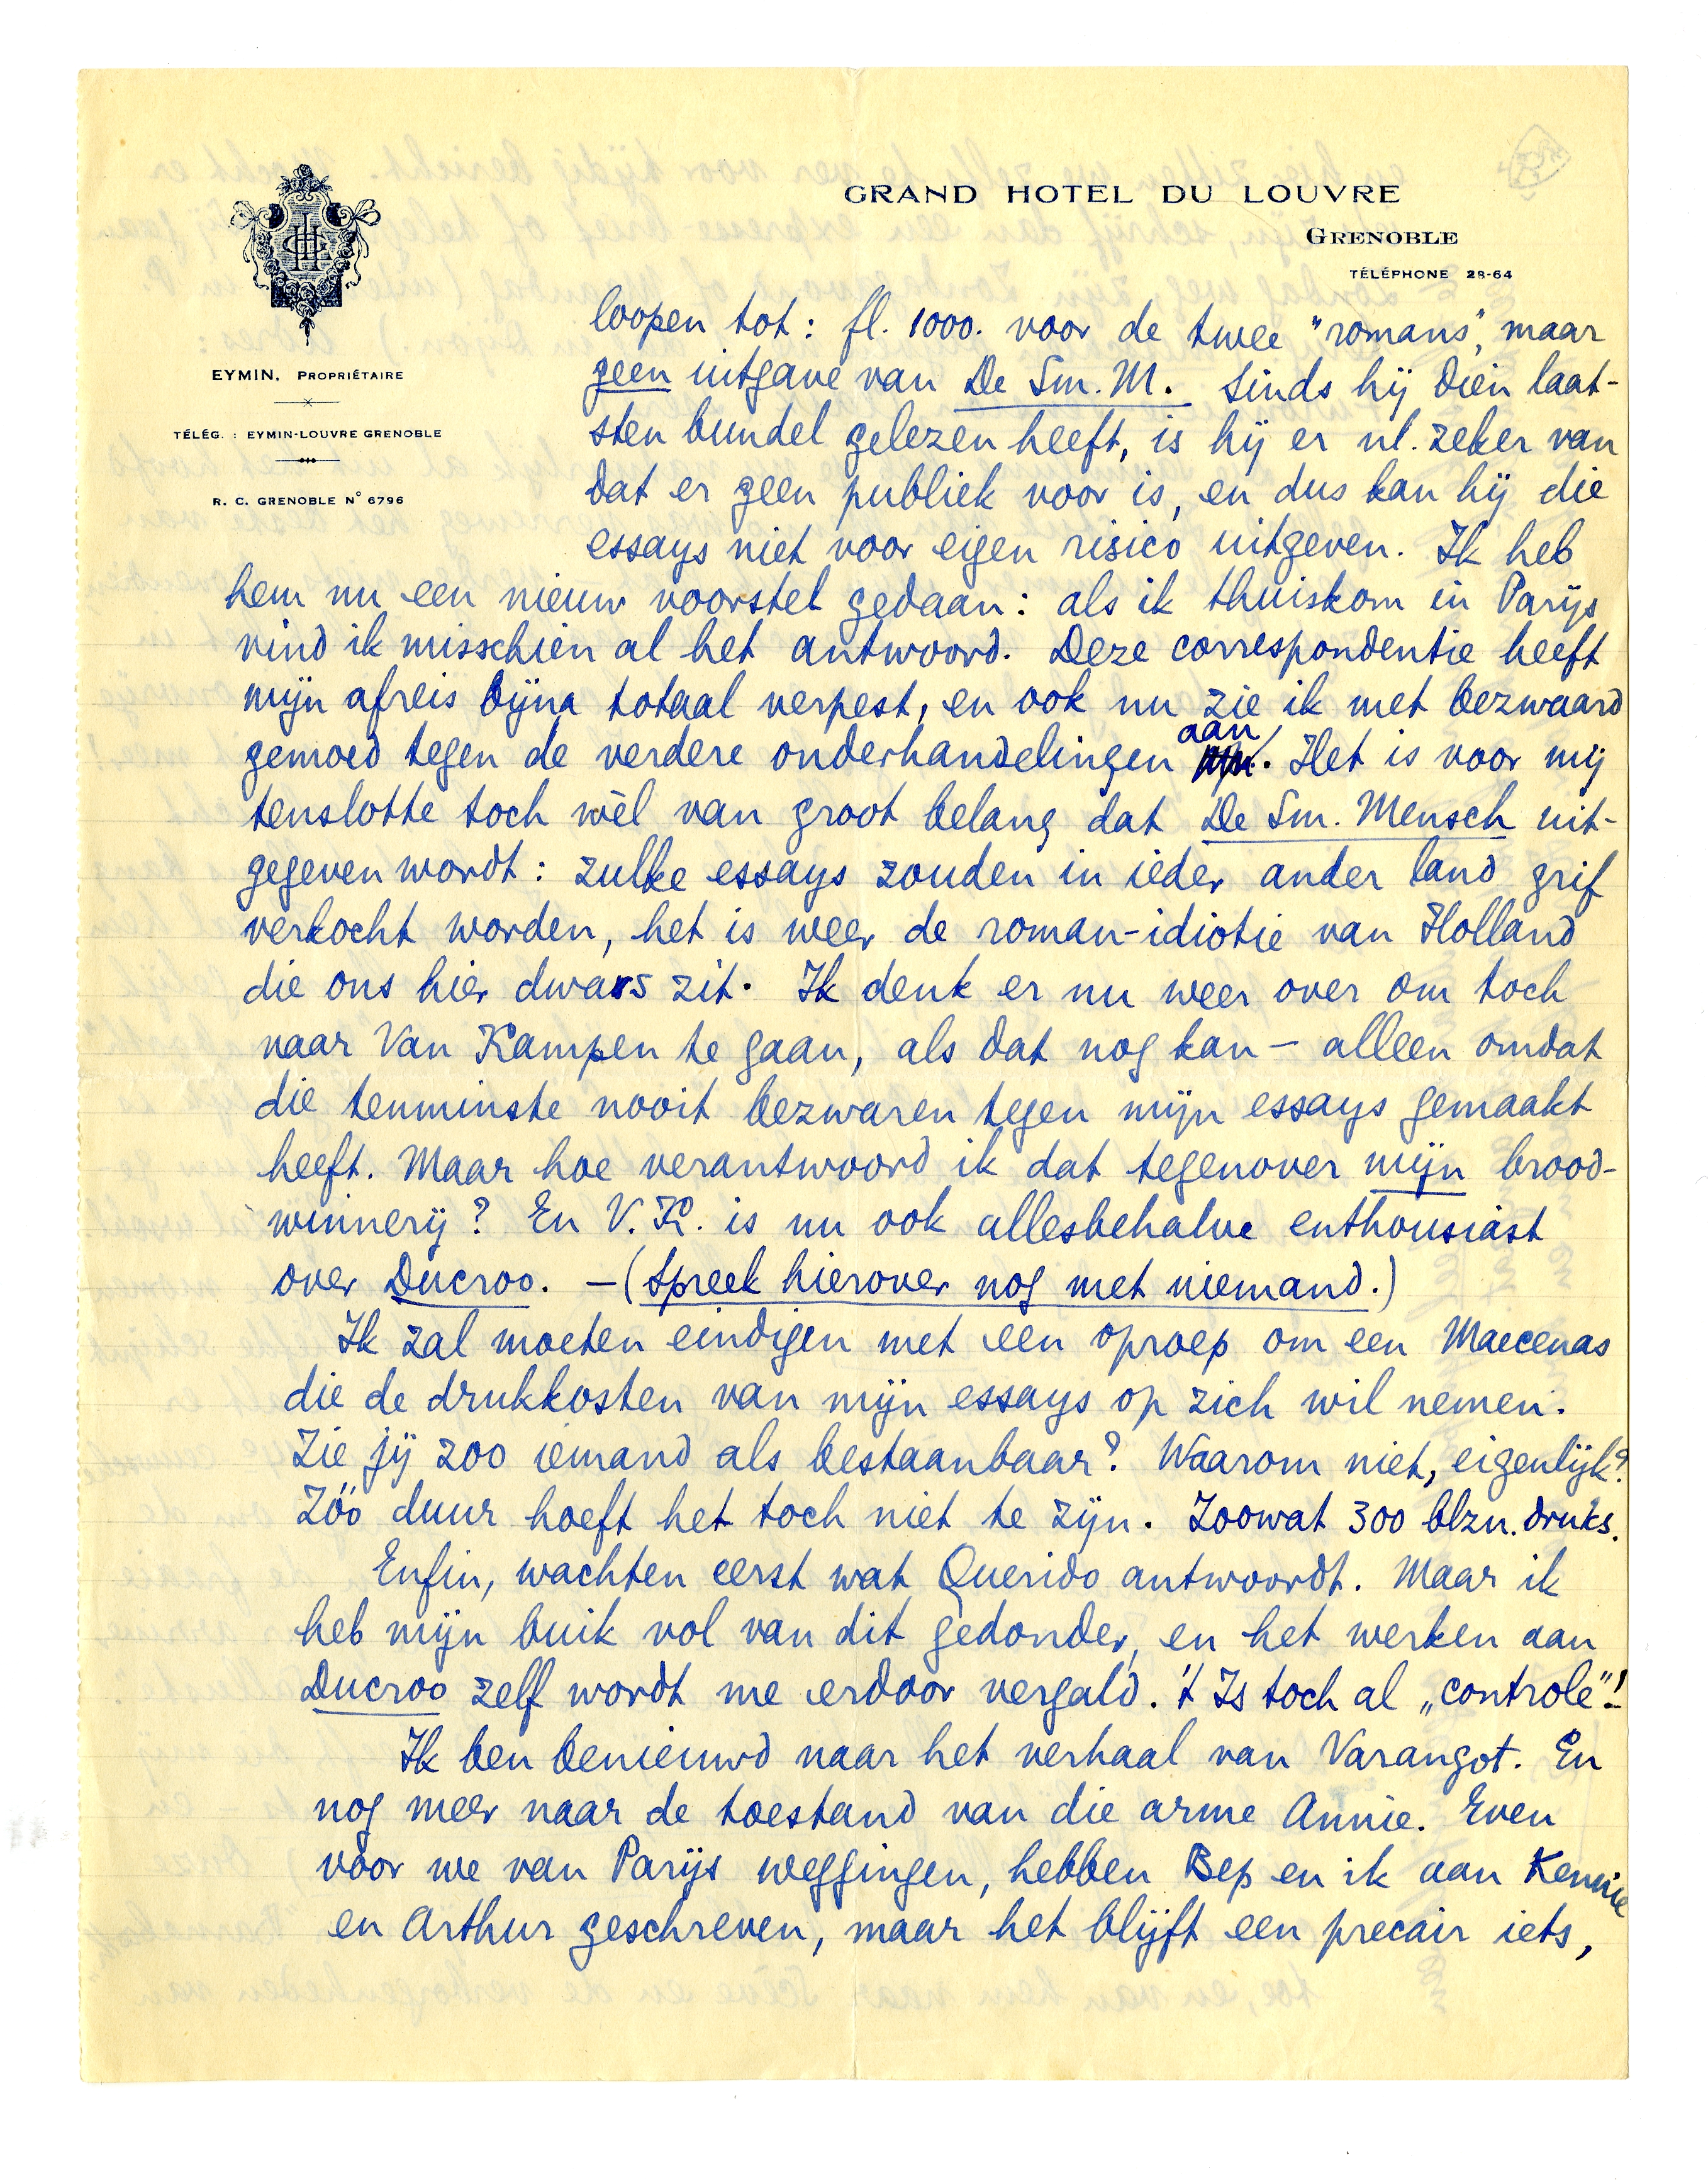 GRAND HOTEL DU LOUVRE
GRENOBLE
TÉLÉPHONE 28-64
EYMIN, PROPRIÉTAIRE
TÉLÉG. : EYMIN-LOUVRE GRENOBLE
R. C. GRENOBLE N° 6796
loopen tot: fl. 1000. voor de twee "romans", maar
geen uitgave van De Sm. M. Sinds hij dien laat-
sten bundel gelezen heeft, is hij er nl. zeker van
dat er geen publiek voor is, en dus kan hij die
essays niet voor eigen risico uitgeven. Ik heb
hem nu een nieuw voorstel gedaan: als ik thuiskom in Parijs
vind ik misschien al het antwoord. Deze correspondentie heeft
mijn afreis bijna totaal verpest, en ook nu zie ik met bezwaard
gemoed tegen de verdere onderhandelingen aan. Het is voor mij
tenslotte toch wèl van groot belang dat De Sm. Mensch uit-
gegeven wordt: zulke essays zouden in ieder ander land grif
verkocht worden, het is weer de roman-idiotie van Holland
die ons hier dwars zit. Ik denk er nu weer over om toch
naar Van Kampen te gaan, als dat nog kan – alleen omdat
die tenminste nooit bezwaren tegen mijn essays gemaakt
heeft. Maar hoe verantwoord ik dat tegenover mijn brood-
winnerij? En V. K. is nu ook allesbehalve enthousiast
over Ducroo. – (Spreek hierover nog met niemand.)
Ik zal moeten eindigen met een oproep om een Maecenas
die de drukkosten van mijn essays op zich wil nemen.
Zie jij zoo iemand als bestaanbaar? Waarom niet, eigenlijk?
Zóó duur hoeft het toch niet te zijn. Zoowat 300 blzn. druks.
Enfin, wachten eerst wat Querido antwoordt. Maar ik
heb mijn buik vol van dit gedonder, en het werken aan
Ducroo zelf wordt me erdoor vergald. 't Is toch al „controle"!
Ik ben benieuwd naar het verhaal van Varangot. En
nog meer naar de toestand van die arme Annie. Even
voor we van Parijs weggingen, hebben Bep en ik aan Kennie
en Arthur geschreven, maar het blijft een precair iets,